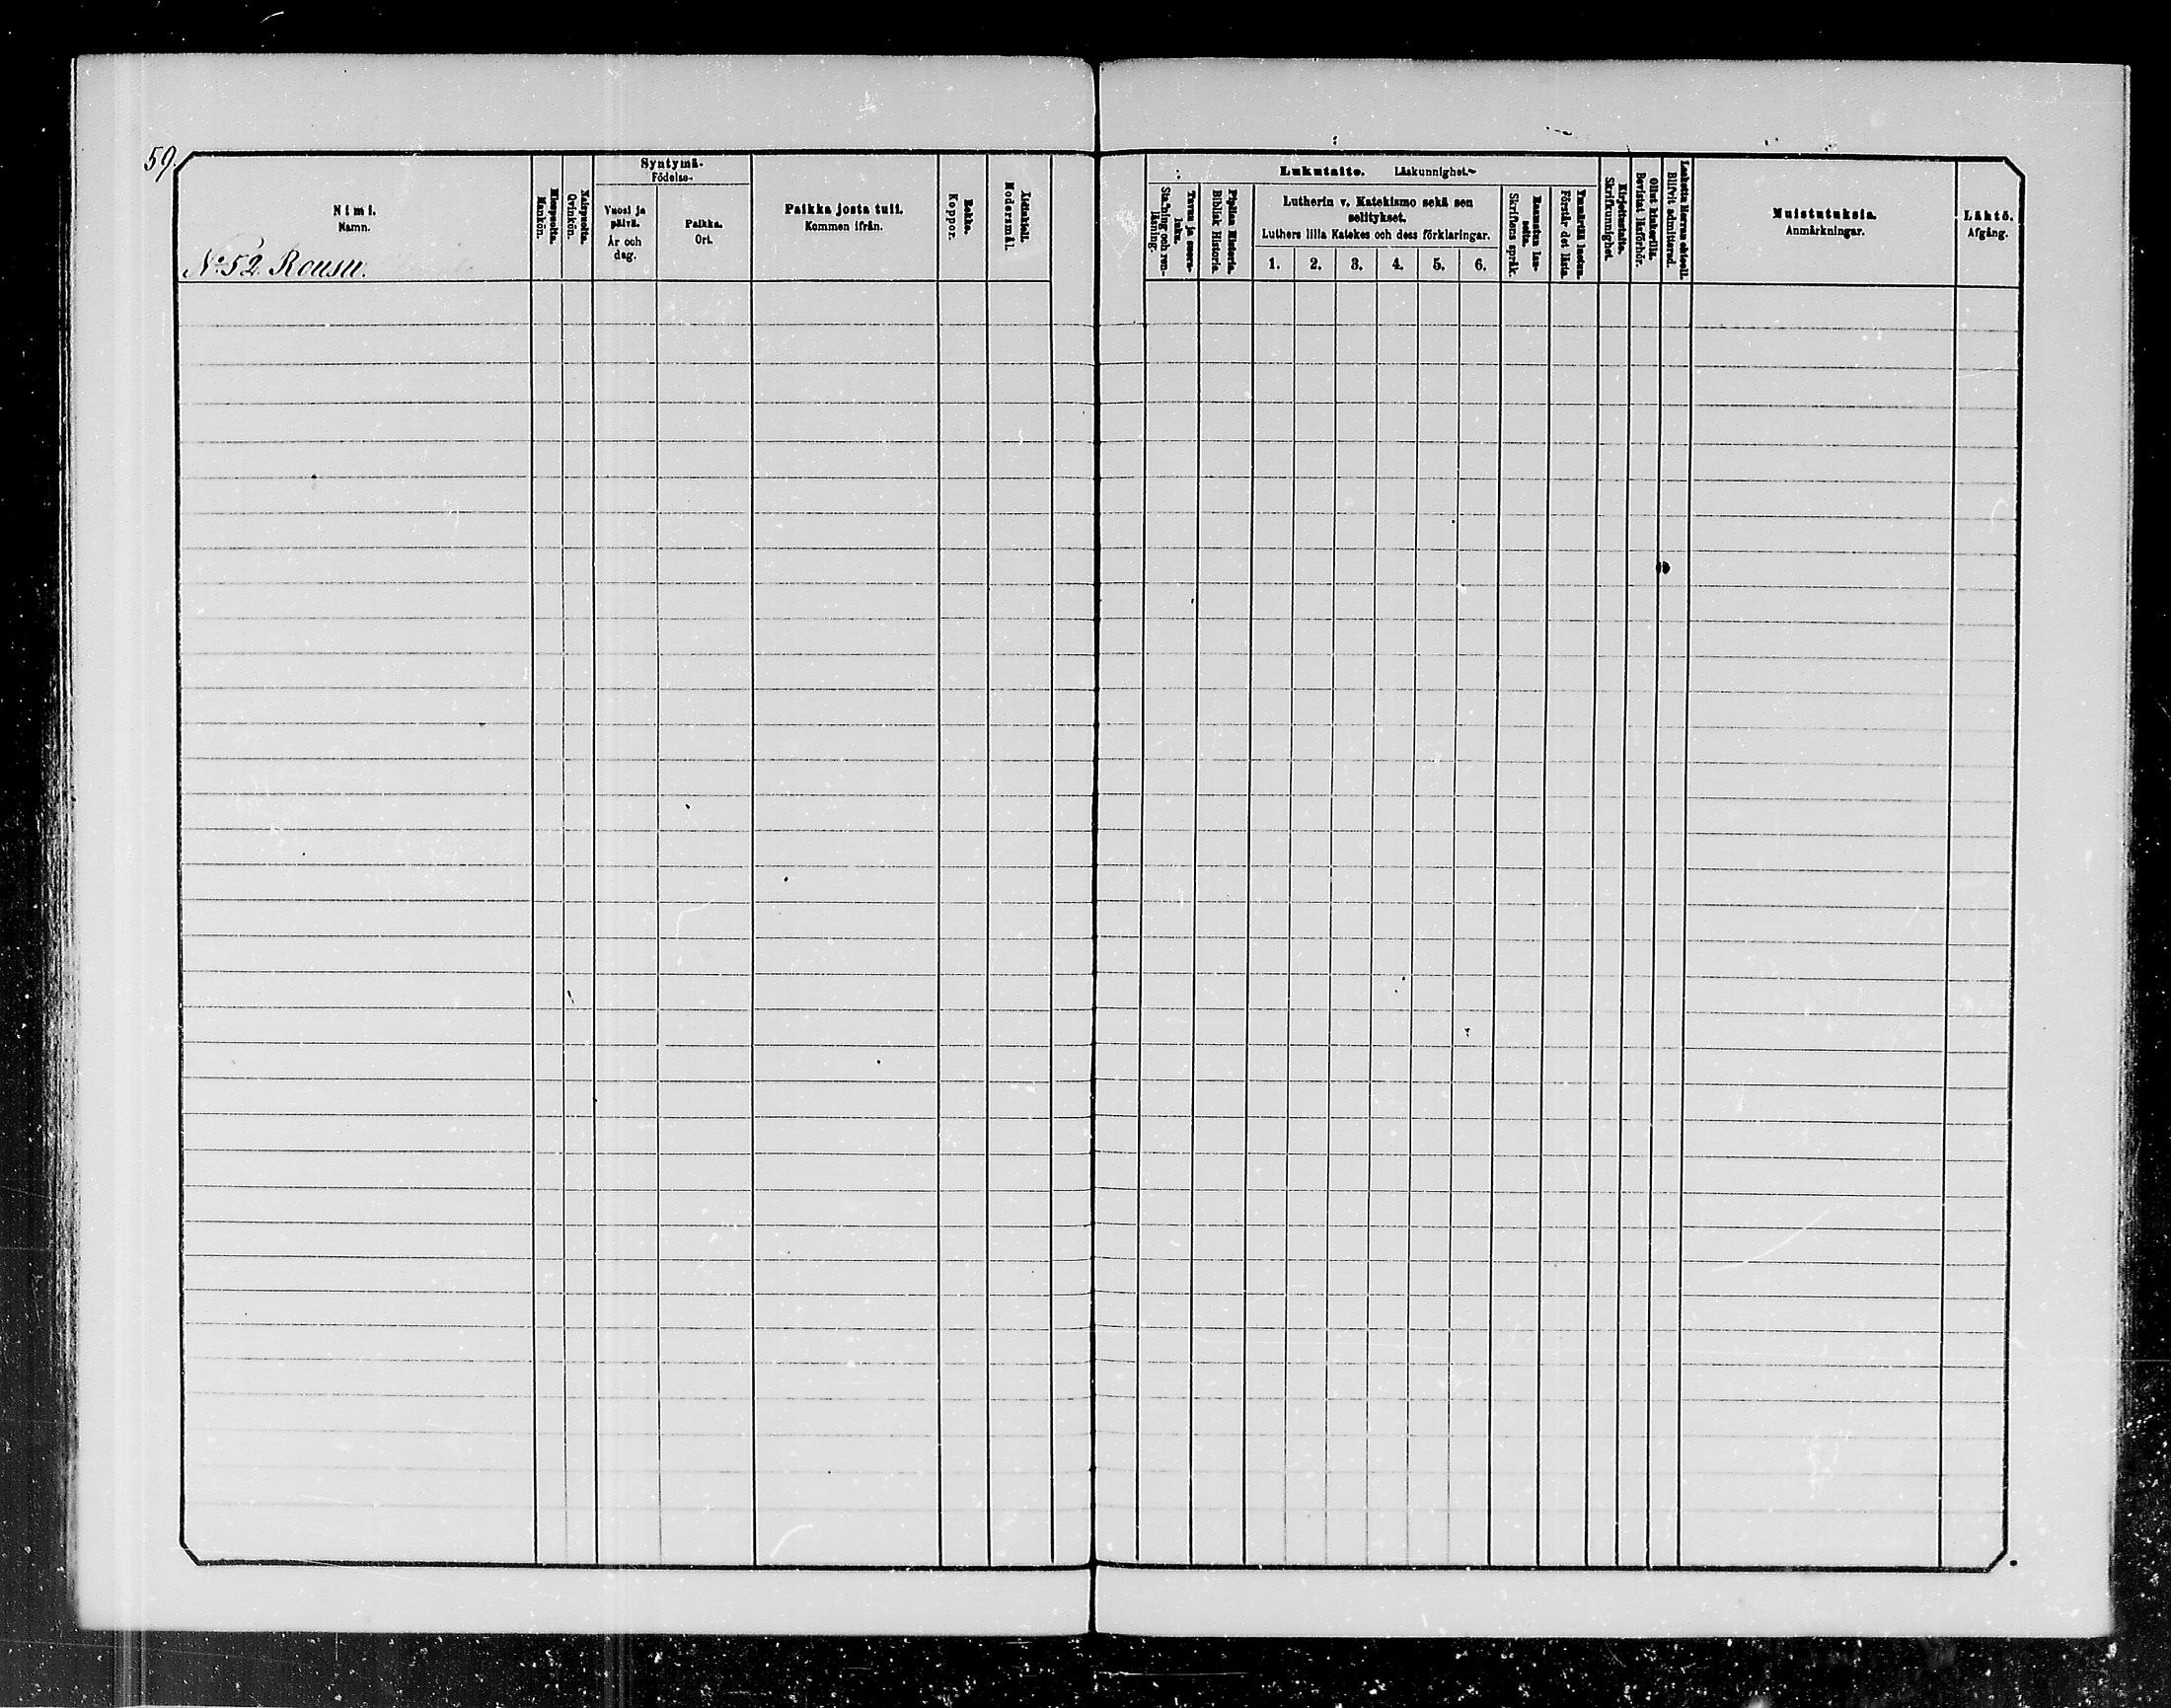 59.
Nimi.
Namn.
No 52 Rousu.
Miespuolta.
Mankön.
Vaispuolta.
Qvinkön.
Syntymä-
Födelse-
Vuosi ja
päivä.
År och
dag.
Paikka.
Ort.
Paikka josta tuli.
Kommen ifrån.
Rokko.
Koppor.
Äidinkieli.
Modersmål.
Lukutaito. Läskunnighet.
Tavuu ja suora-
luku.
Stafning och ren-
läsning.
Piplian Historia.
Biblisk Historia.
Lutherin v. Katekismo sekä sen
selitykset.
Luthers lilla Katekes och dess förklaringar.
1. 2. 3. 4. 5. 6.
Raamatun lau-
seita.
Skriftens språk.
Ymmärtää luetun.
Förstår det lästa.
Kirjoitustaito.
Skrifkunnighet.
Ollut kinkerillä.
Bevistat läsförhör.
Laskettu Herran ehtooll.
Blifvit admitterad.
Muistutuksia.
Anmärkningar.
Lähtö.
Afgång.